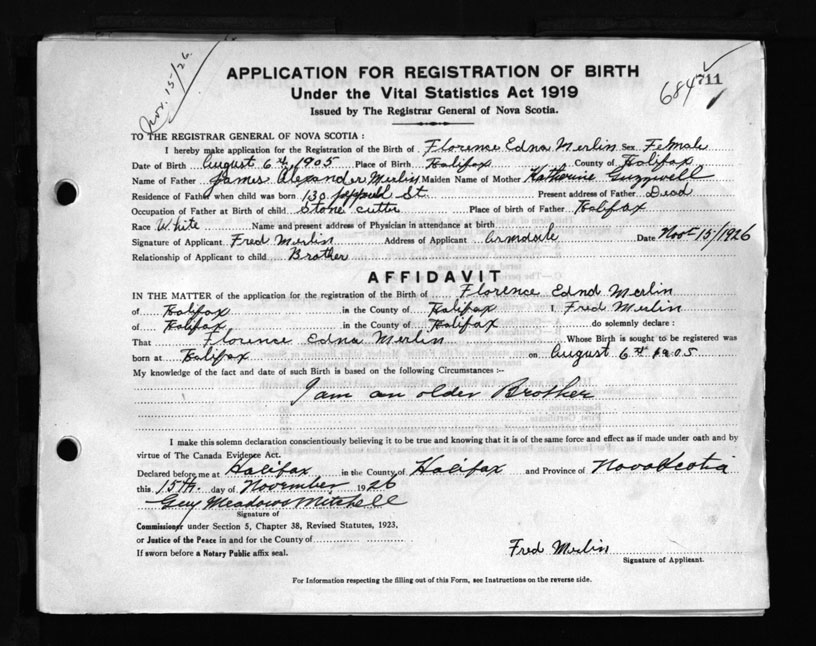 Nov. 15/26.
684 711
APPLICATION FOR REGISTRATION OF BIRTH
Under the Vital Statistics Act 1919
Issued by The Registrar General of Nova Scotia.
TO THE REGISTRAR GENERAL OF NOVA SCOTIA :
I hereby make application for the Registration of the Birth of Florence Edna Merlin Sex Female
Date of Birth August 6th, 1905 Place of Birth Halifax County of Halifax
Name of Father James Alexander Merlin Maiden Name of Mother Katherine Guzzwell
Residence of Father when child was born 130 St Present address of Father Dead
Occupation of Father at Birth of child Stone cutter Place of birth of Father Halifax
Race White Name and present address of Physician in attendance at birth
Signature of Applicant Fred Merlin Address of Applicant Armdale Date Nov 15/1926
Relationship of Applicant to child Brother
AFFIDAVIT
IN THE MATTER of the application for the registration of the Birth of Florence Edna Merlin
of Halifax in the County of Halifax I, Fred Merlin
of Halifax in the County of Halifax do solemnly declare :
That Florence Edna Merlin Whose Birth is sought to be registered was
born at Halifax on August 6th 1905
My knowledge of the fact and date of such Birth is based on the following Circumstances :--
I am an older Brother
I make this solemn declaration conscientiously believing it to be true and knowing that it is of the same force and effect as if made under oath and by
virtue of The Canada Evidence Act.
Declared before me at Halifax in the County of Halifax and Province of Nova Scotia
this 15th day of November 1926
Guy Meadows Mitchell
Signature of
Commissioner under Section 5, Chapter 38, Revised Statutes, 1923.
or Justice of the Peace in and for the County of
If sworn before a Notary Public affix seal.
Fred Merlin
Signature of Applicant.
For Information respecting the filling out of this Form, see Instructions on the reverse side.